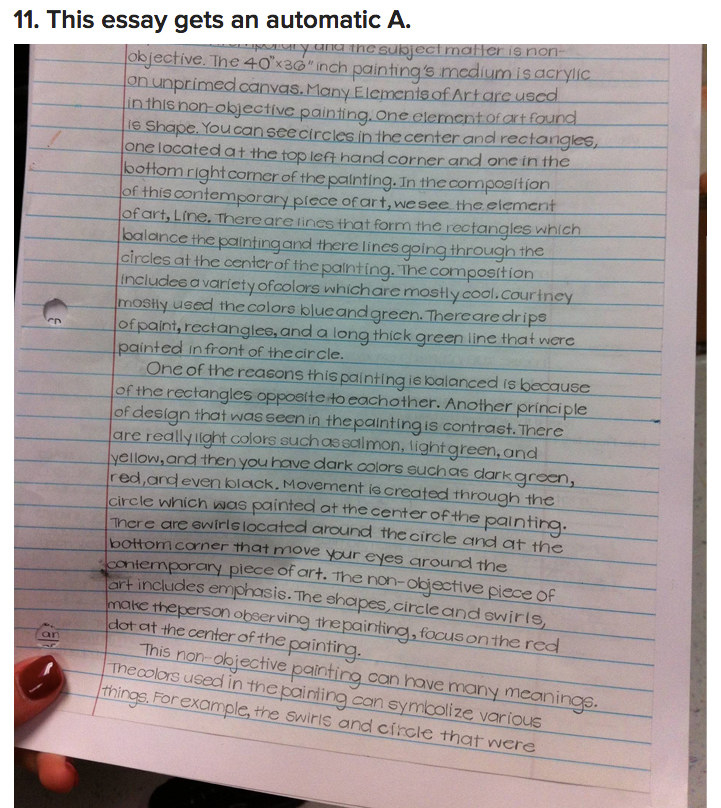 11. This essay gets an automatic A.
and the subject matter is non-
objective. The 40"x36" inch painting's medium is acrylic
on unprimed canvas. Many Elements of Art are used
in this non-objective painting. One element of art found
is Shape. You can see circles in the center and rectangles,
one located at the top left hand corner and one in the
bottom right corner of the painting. In the composition
of this contemporary piece of art, we see the element
of art, Line. There are lines that form the rectangles which
balance the painting and there lines going through the
circles at the center of the painting. The composition
includes a variety of colors which are mostly cool. Courtney
mostly used the colors blue and green. There are drips
of paint, rectangles, and a long thick green line that were
painted in front of the circle.
One of the reasons this painting is balanced is because
of the rectangles opposite to each other. Another principle
of design that was seen in the painting is contrast. There
are really light colors such as salmon, light green, and
yellow, and then you have dark colors such as dark green,
red, and even black. Movement is created through the
circle which was painted at the center of the painting.
There are swirls located around the circle and at the
bottom corner that move your eyes around the
contemporary piece of art. The non-objective piece of
art includes emphasis. The shapes, circle and swirls,
make the person observing the painting, focus on the red
dot at the center of the painting.
This non-objective painting can have many meanings.
The colors used in the painting can symbolize various
things. For example, the swirls and circle that were